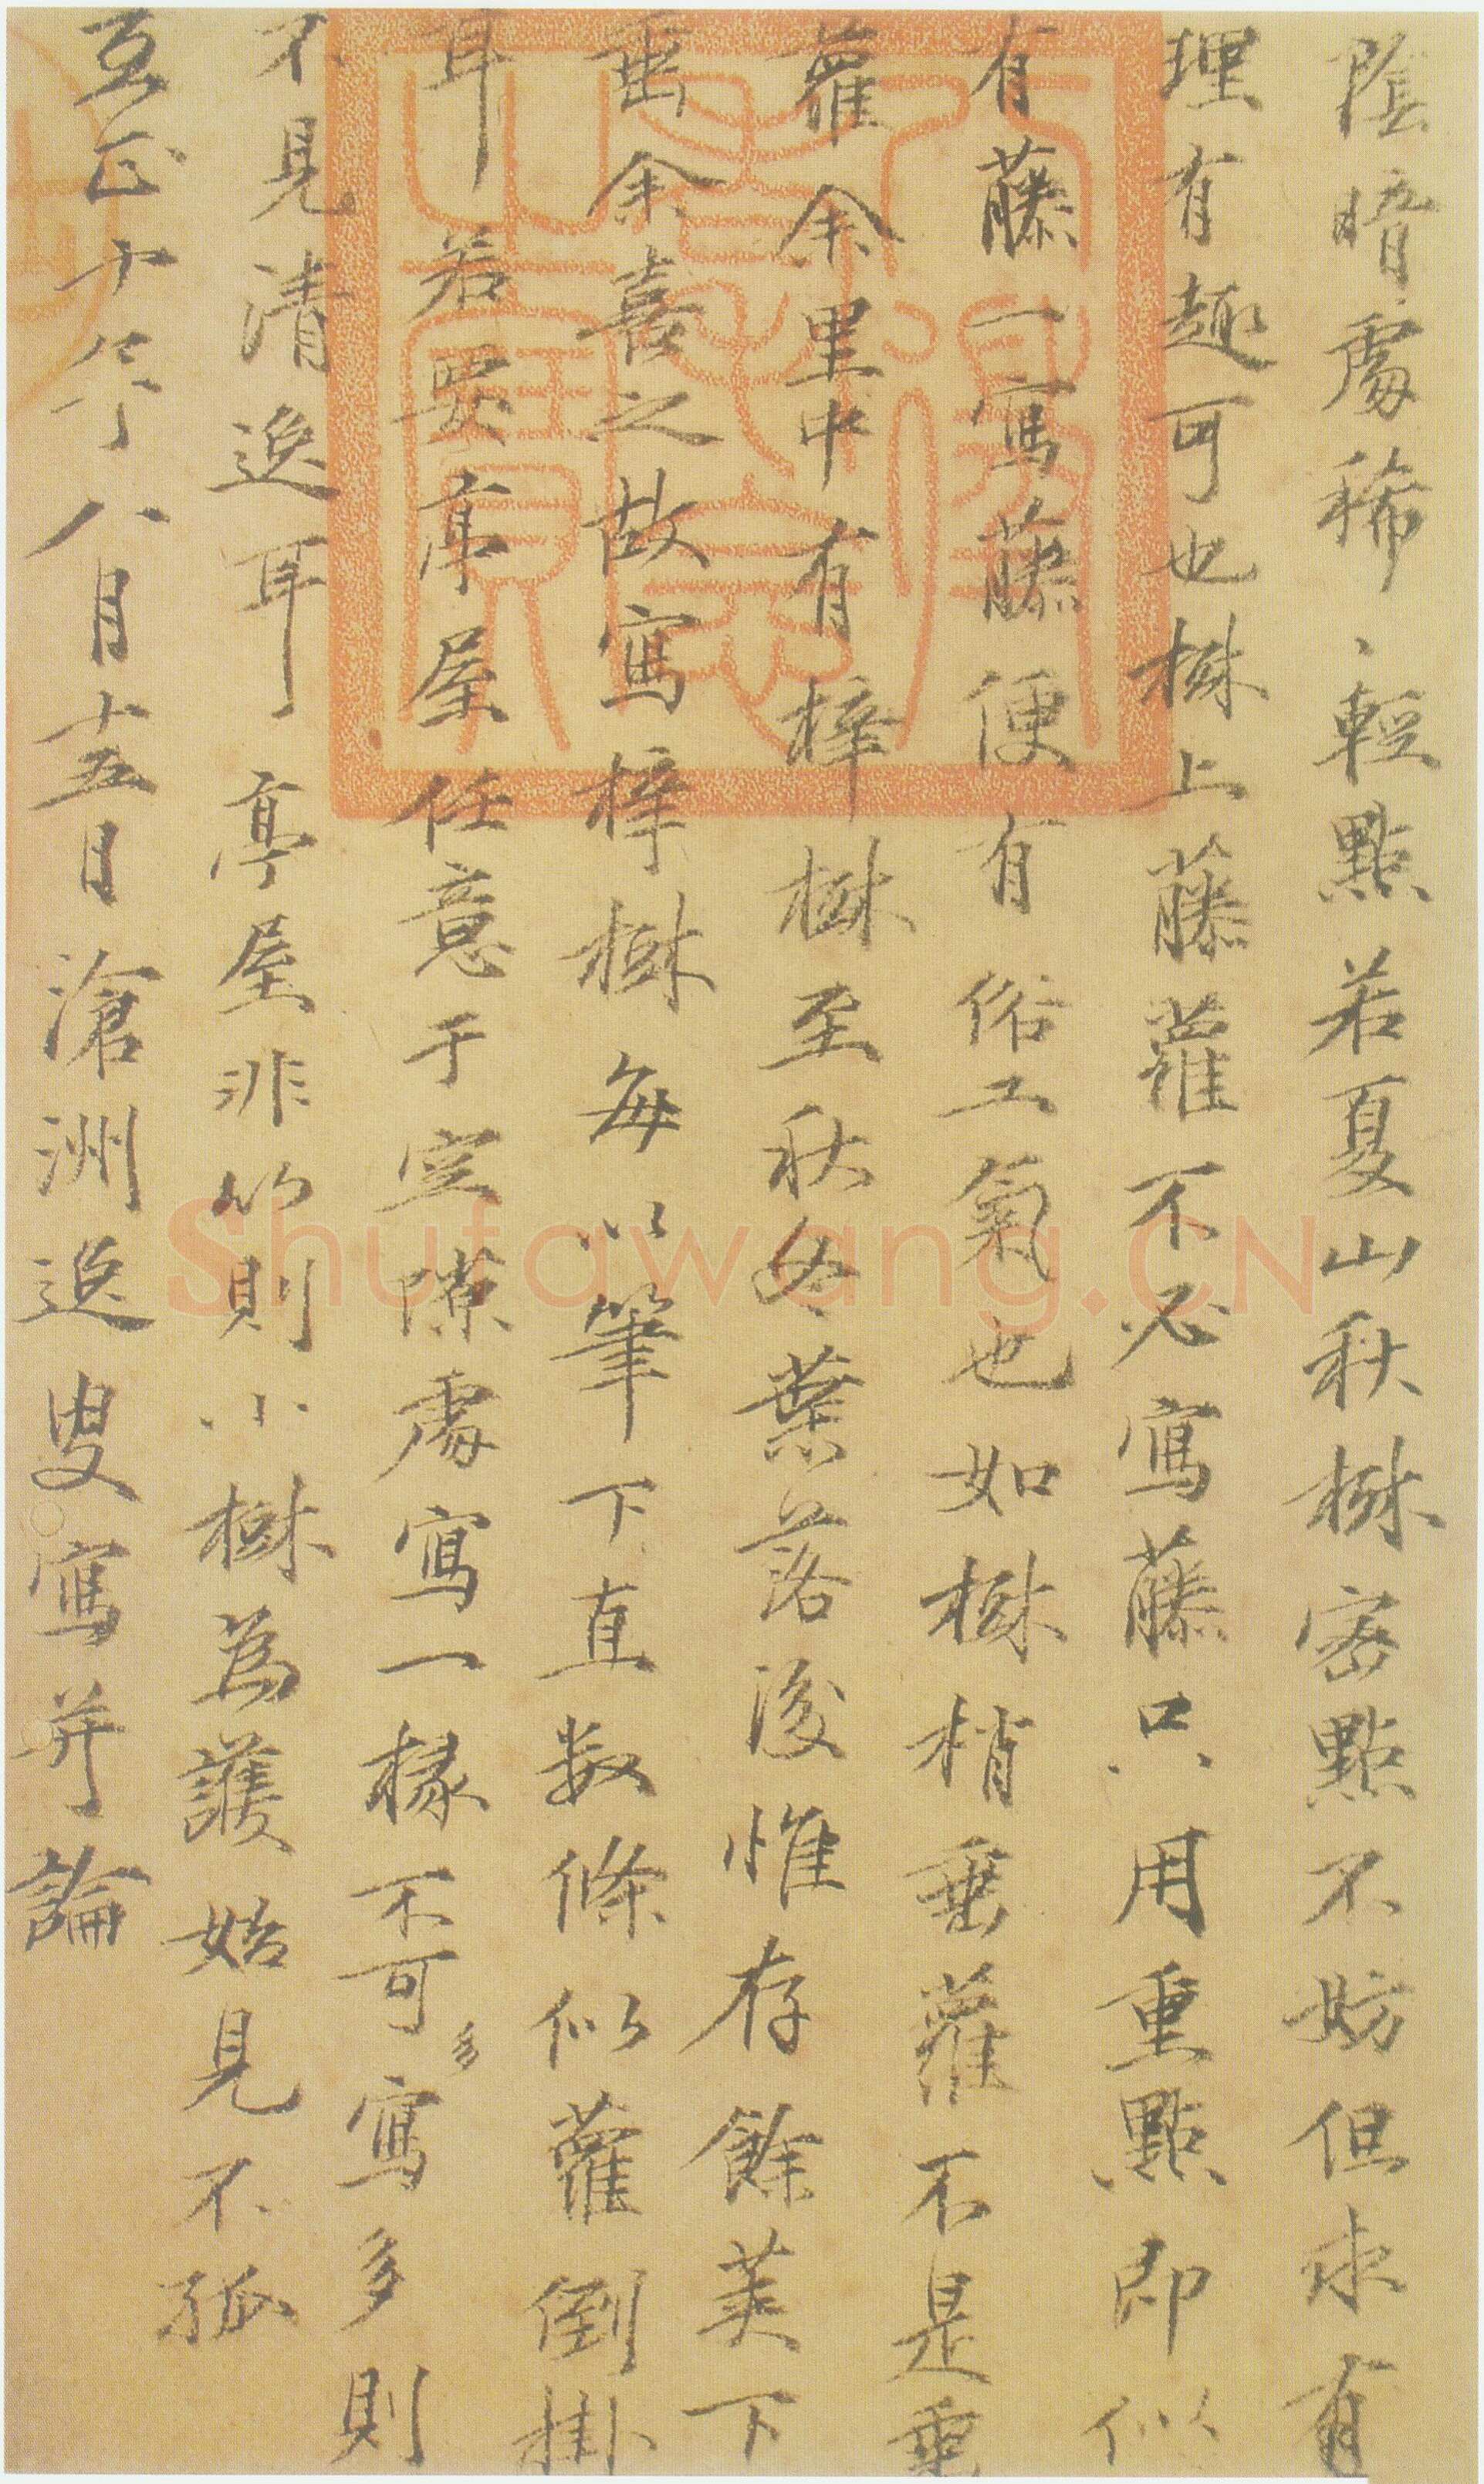 陰暗處稀、輕點若夏山秋樹密點不妨但求有
理有趣可也樹上藤蘿不必寫藤只用重點即似
有藤一寫藤便有俗工氣也如樹梢垂蘿不是垂
蘿余里中有梓樹至秋冬葉落後惟存餘荚下
垂余喜之故寫梓樹每以筆下直数條似蘿倒掛
耳若要亭屋任意于空隙處寫一椽不可多寫多則
不見清逸耳亭屋非竹則小樹為護始見不孤
至正十年八月十五日滄洲逸叟寫并論
Shufawang.CN